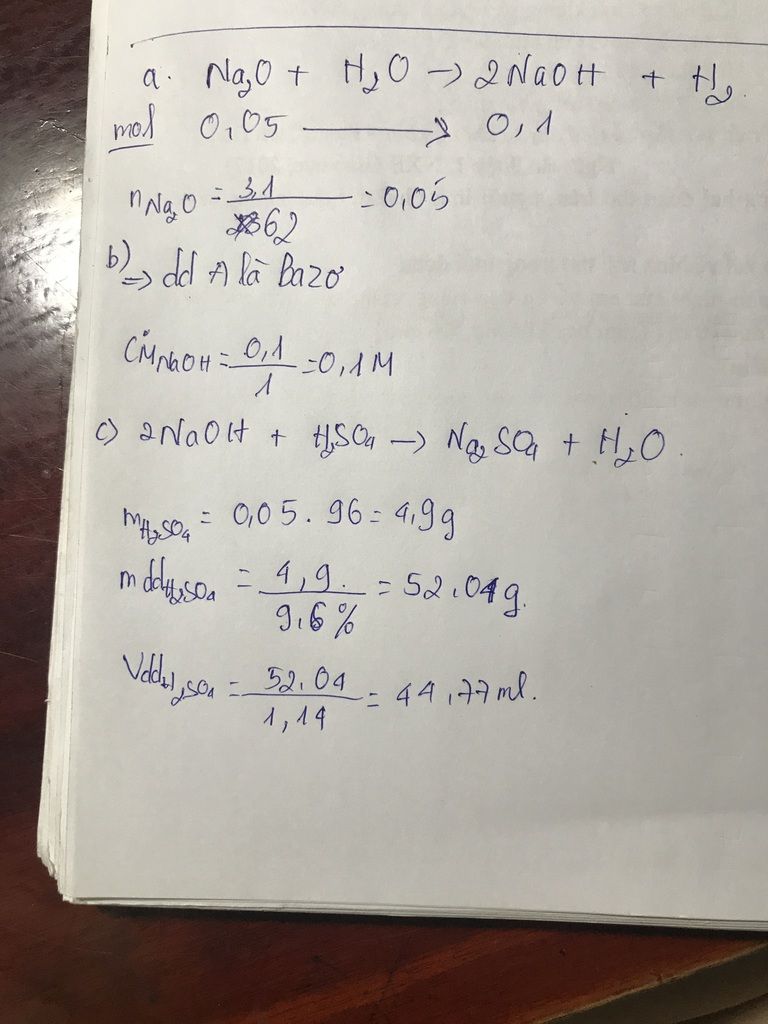 a. Na₂O + H₂O → 2NaOH + H₂.
mol 0,05 → 0,1
nNa₂O = 3,1 / 62 = 0,05
b) ⇒ dd A là Bazơ
CMNaOH = 0,1 / 1 = 0,1M
c) 2NaOH + H₂SO₄ → Na₂SO₄ + H₂O.
mH₂SO₄ = 0,05 . 96 = 4,9g
mddH₂SO₄ = 4,9. / 9.6% = 52.04g.
VddH₂SO₄ = 52.04 / 1,14 = 44,77ml.